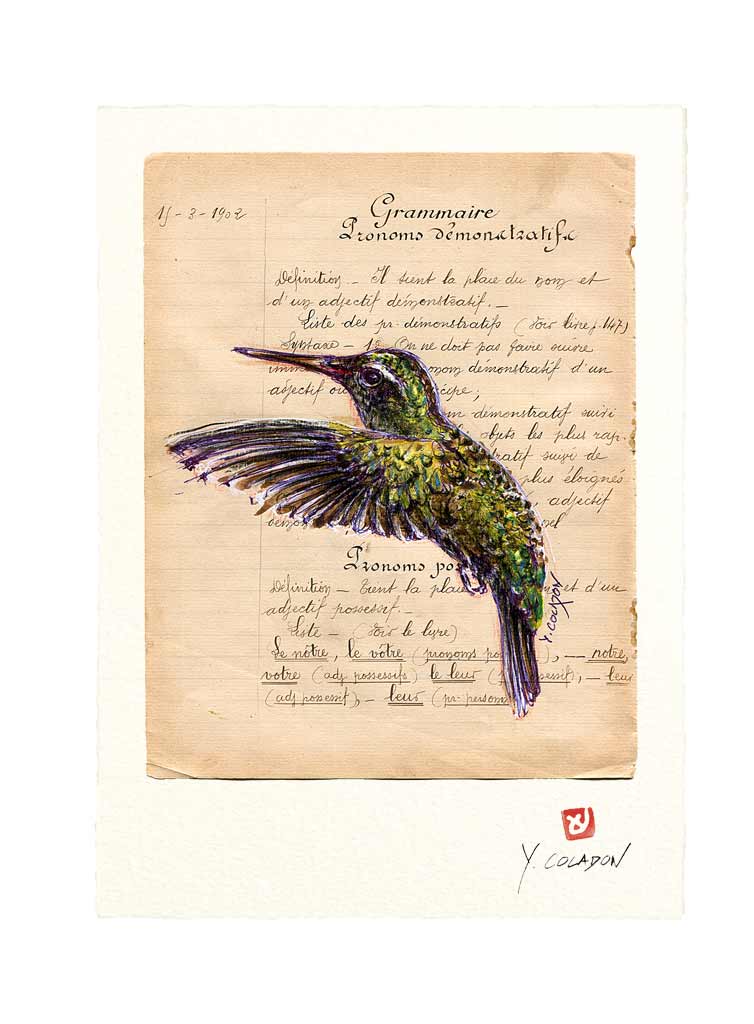 15-3-1902
Grammaire
Pronoms démonstratifs
Définition - Il tient la place du nom et
d'un adjectif démonstratif. -
Liste des pr. démonstratifs (Voir livre p. 147)
Syntaxe - 1º On ne doit pas faire suivre
nom démonstratif d'un
adjectif ou cipe;
démonstratif suivi
objets les plus rap-
ratif suivi de
plus éloignés
adjectif
Pronoms pos
Définition - Tient la place et d'un
adjectif possessif. -
Liste - (Voir le livre)
Le nôtre, le vôtre (pronoms po ), -- notre,
votre (adj possessifs) le leur (p essif), - leur
(adj possessif), - leur (pr. person
Y. COLADON
Y. COLADON